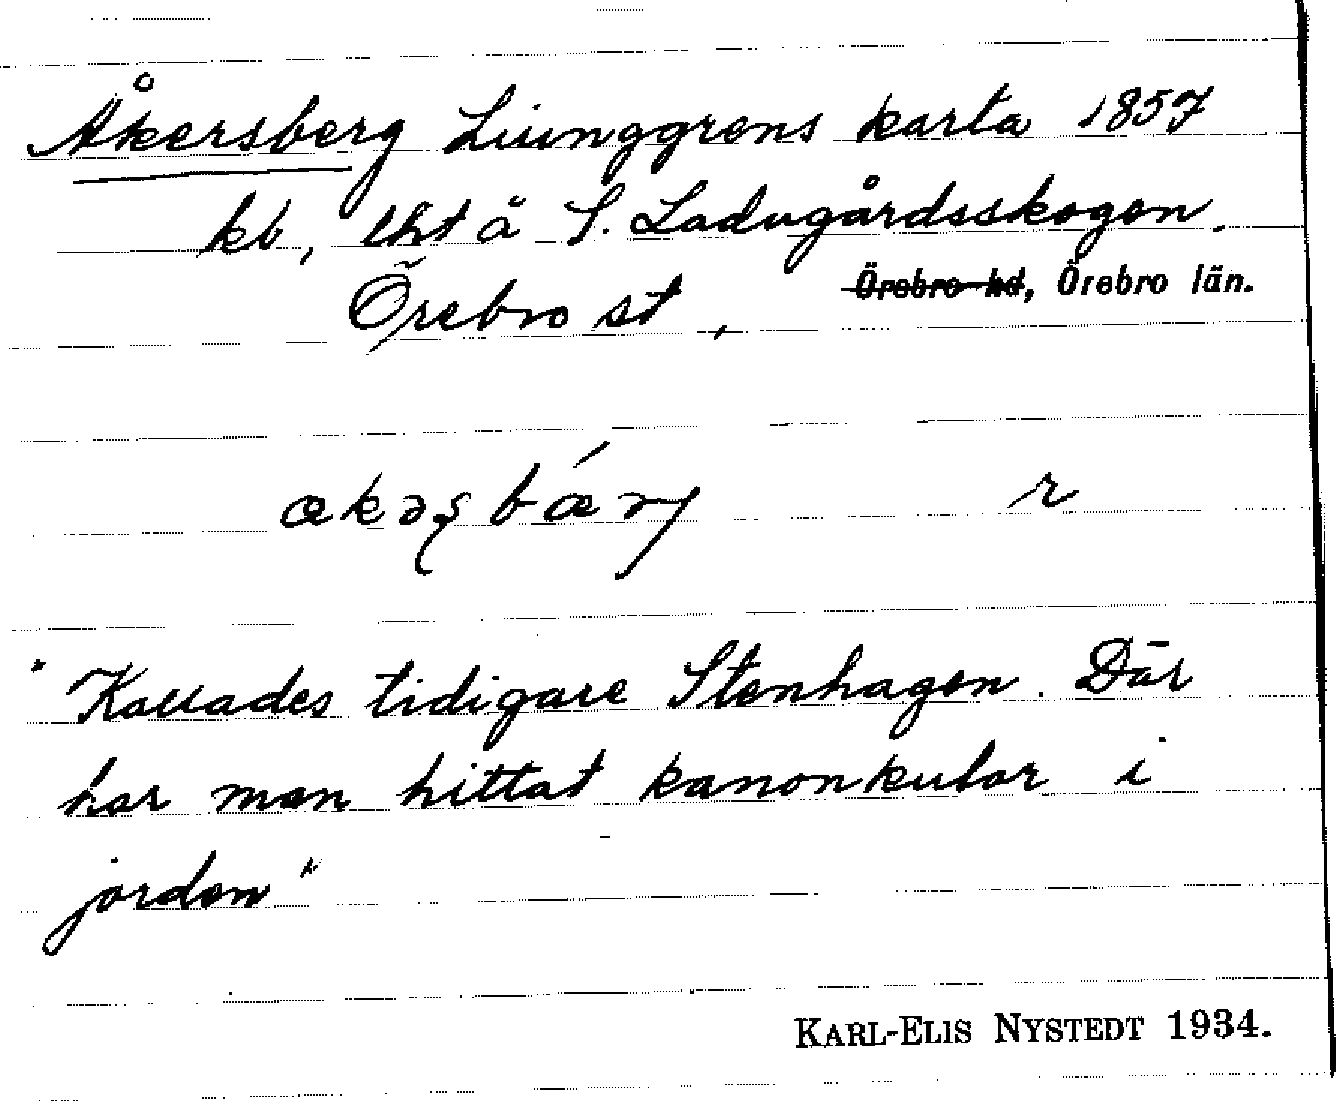 Åkersberg Ljunggrens karta 1857
kb, lht å S. Ladugårdsskogen.
Örebro st, Örebro hd, Örebro län.
ækəʂbǽrɟ r
"Kallades tidigare Stenhagen. Där
har man hittat kanonkulor i
jorden"
KARL-ELIS NYSTEDT 1934.